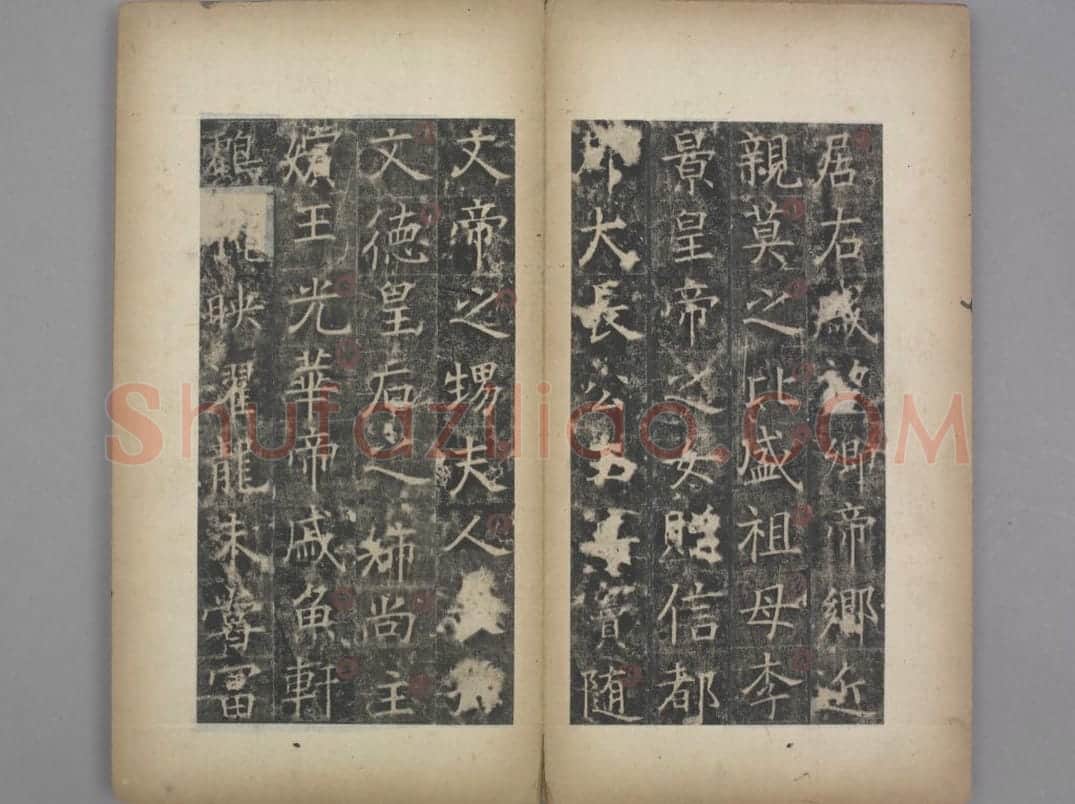 居右戚卿帝鄉近
親莫之比盛祖母李
景皇帝之女贈信都
大長公主實随
文帝之甥夫人
文德皇后之姊尚主
嬪王光華帝戚魚軒
映濯龍未嘗富
Shufaziliao.COM